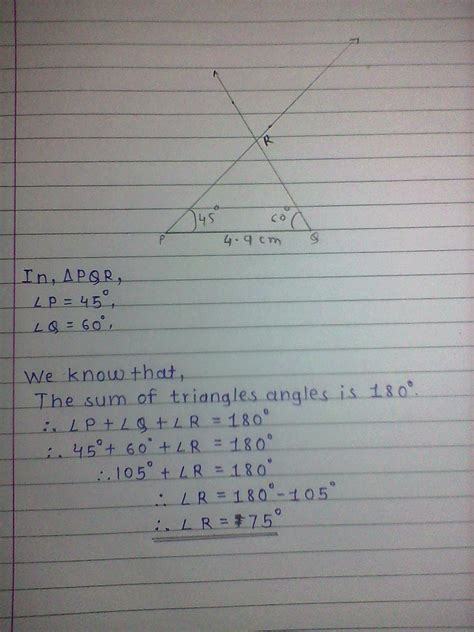 R
45° 60°
P 4.9 cm Q
In, △PQR,
∠P = 45°,
∠Q = 60°,
We know that,
The sum of triangles angles is 180°.
∴ ∠P + ∠Q + ∠R = 180°
∴ 45° + 60° + ∠R = 180°
∴ 105° + ∠R = 180°
∴ ∠R = 180° - 105°
∴ ∠R = 75°